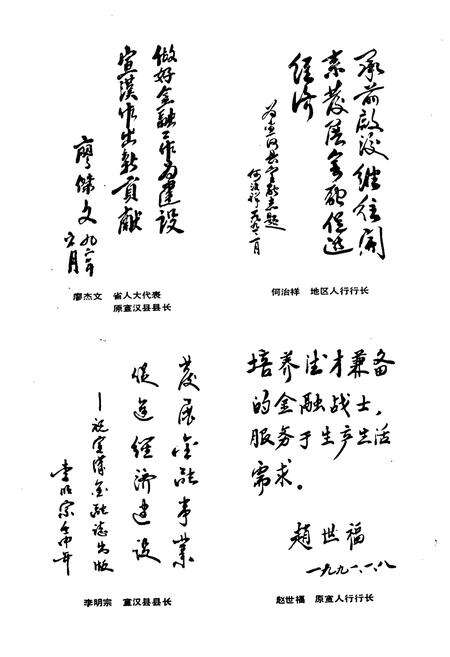 做好金融工作为建设
宣汉作出新贡献
廖傑文
九二年
五月
廖杰文 省人大代表
原宣汉县县长
承前啟后继往开
来发展金融促进
经济
为宣汉县金融志题
何治祥
何治祥 地区人行行长
發展金融事業
促進經濟建设
—祝宣漢金融誌出版
李明宗
李明宗 宣汉县县长
培养德才兼备
的金融战士,
服务于生产生活
需求。
趙世福
一九九一.一.八
赵世福 原宣人行行长